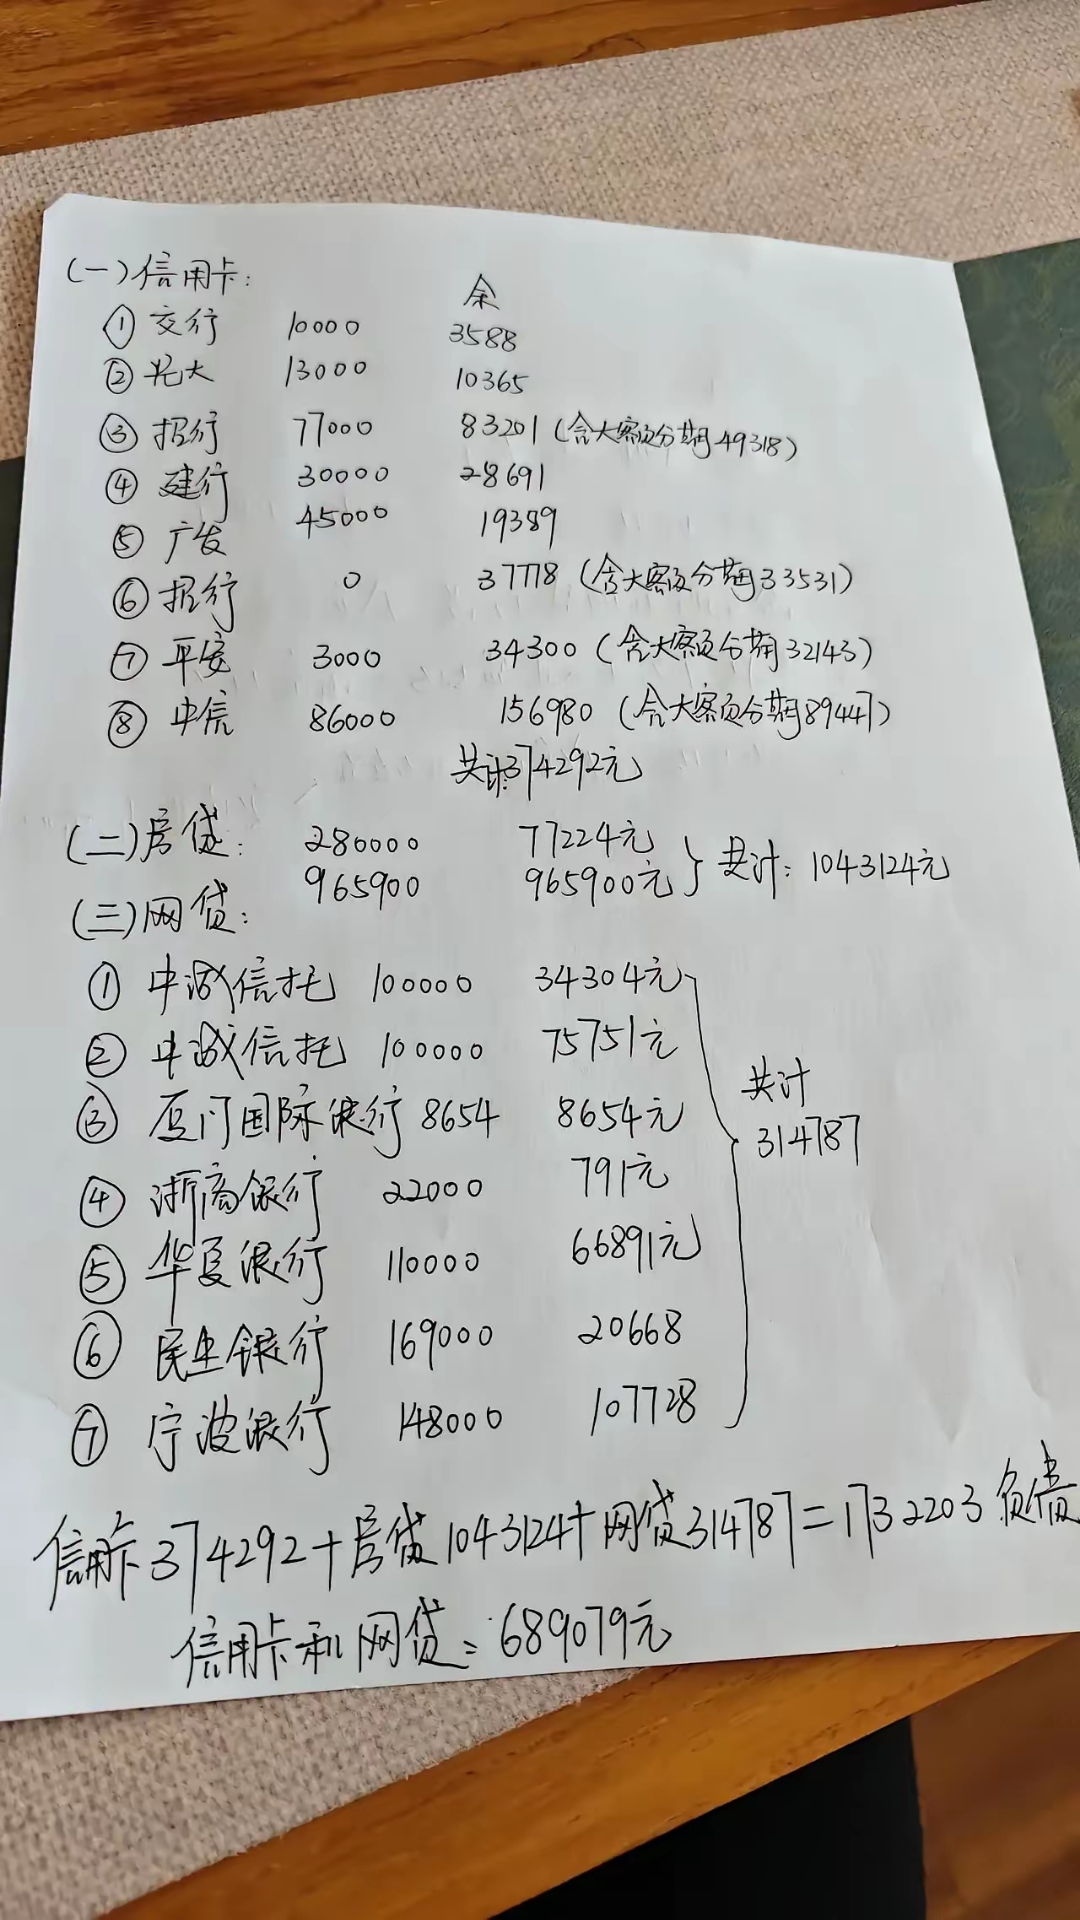 (一)信用卡:
余
① 交行 10000 3588
② 光大 13000 10365
③ 招行 77000 83201 (含大额分期49318)
④ 建行 30000 28691
⑤ 广发 45000 19389
⑥ 招行 0 37778 (含大额分期33531)
⑦ 平安 3000 34300 (含大额分期32143)
⑧ 中信 86000 156980 (含大额分期89447)
共计:374292元
(二)房贷: 280000 77224元
965900 965900元 } 共计: 1043124元
(三)网贷:
① 中诚信托 100000 34304元
② 中诚信托 100000 75751元
③ 厦门国际银行 8654 8654元
④ 浙商银行 22000 791元
⑤ 华夏银行 110000 66891元
⑥ 民生银行 169000 20668
⑦ 宁波银行 148000 107728
共计
314787
信用卡374292+房贷1043124+网贷314787=1732203负债
信用卡和网贷=689079元